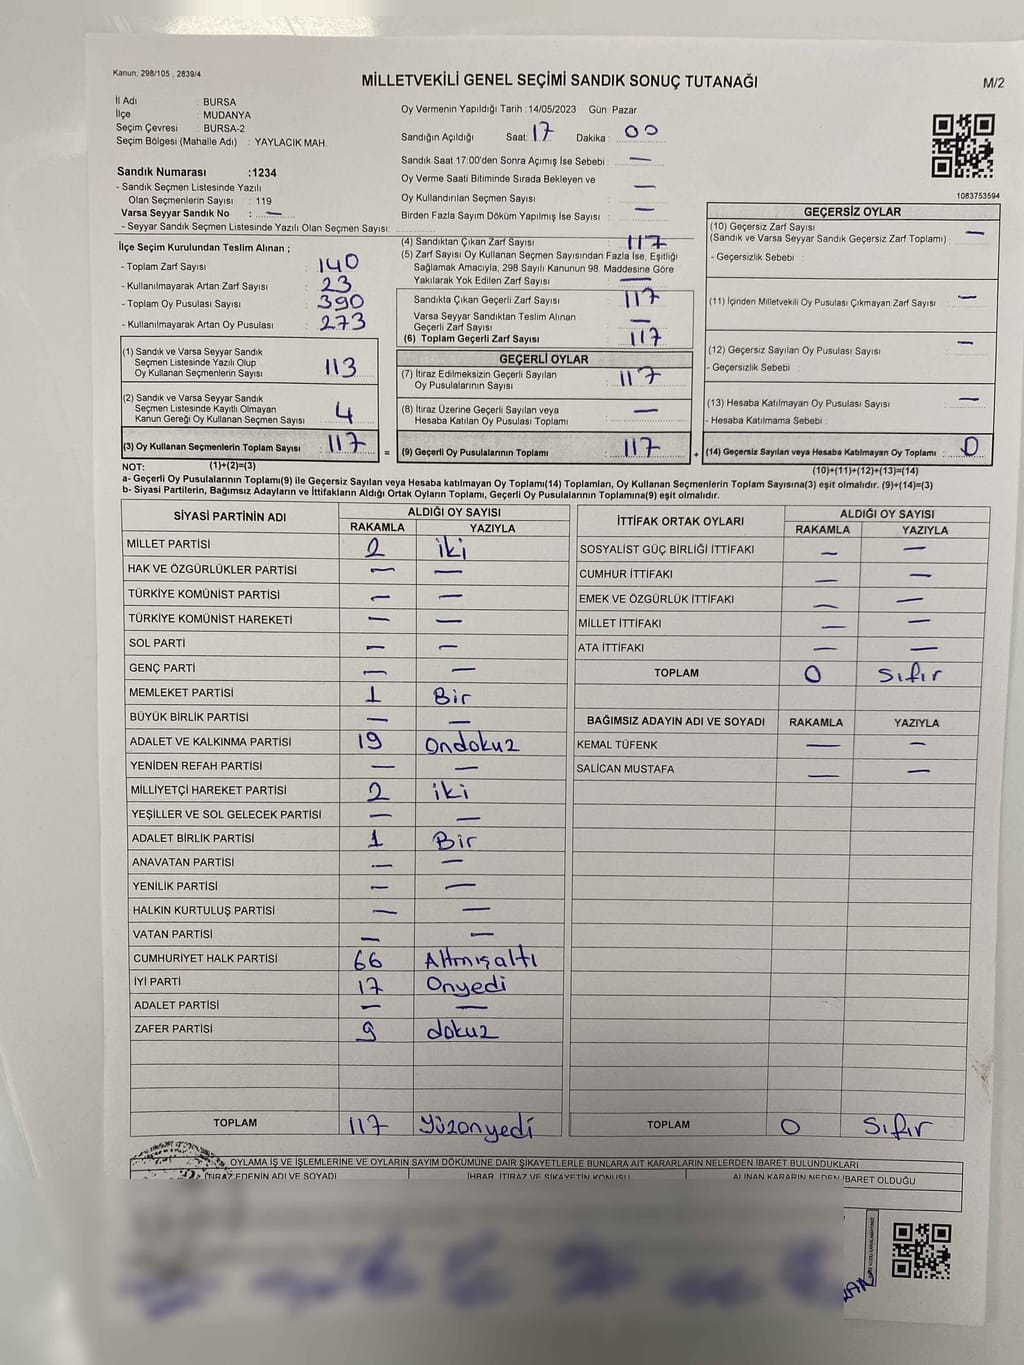 Kanun; 298/105 , 2839/4
MİLLETVEKİLİ GENEL SEÇİMİ SANDIK SONUÇ TUTANAĞI
M/2
İl Adı : BURSA
İlçe : MUDANYA
Seçim Çevresi : BURSA-2
Seçim Bölgesi (Mahalle Adı) : YAYLACIK MAH.
Oy Vermenin Yapıldığı Tarih :14/05/2023 Gün Pazar
Sandığın Açıldığı Saat: 17 Dakika : 00
Sandık Saat 17:00'den Sonra Açımış İse Sebebi : —
Oy Verme Saati Bitiminde Sırada Bekleyen ve
Oy Kullandırılan Seçmen Sayısı —
Birden Fazla Sayım Döküm Yapılmış İse Sayısı : —
1083753594
Sandık Numarası :1234
- Sandık Seçmen Listesinde Yazılı
Olan Seçmenlerin Sayısı : 119
Varsa Seyyar Sandık No : —
- Seyyar Sandık Seçmen Listesinde Yazılı Olan Seçmen Sayısı:
İlçe Seçim Kurulundan Teslim Alınan ;
- Toplam Zarf Sayısı : 140
- Kullanılmayarak Artan Zarf Sayısı : 23
- Toplam Oy Pusulası Sayısı : 390
- Kullanılmayarak Artan Oy Pusulası : 273
(1) Sandık ve Varsa Seyyar Sandık
Seçmen Listesinde Yazılı Olup
Oy Kullanan Seçmenlerin Sayısı 113
(2) Sandık ve Varsa Seyyar Sandık
Seçmen Listesinde Kayıtlı Olmayan
Kanun Gereği Oy Kullanan Seçmen Sayısı 4
(3) Oy Kullanan Seçmenlerin Toplam Sayısı : 117
(1)+(2)=(3)
(4) Sandıktan Çıkan Zarf Sayısı 117
(5) Zarf Sayısı Oy Kullanan Seçmen Sayısından Fazla İse, Eşitliği
Sağlamak Amacıyla, 298 Sayılı Kanunun 98. Maddesine Göre
Yakılarak Yok Edilen Zarf Sayısı : —
Sandıkta Çıkan Geçerli Zarf Sayısı : 117
Varsa Seyyar Sandıktan Teslim Alınan
Geçerli Zarf Sayısı —
(6) Toplam Geçerli Zarf Sayısı : 117
GEÇERLİ OYLAR
(7) İtiraz Edilmeksizin Geçerli Sayılan
Oy Pusulalarının Sayısı : 117
(8) İtiraz Üzerine Geçerli Sayılan veya
Hesaba Katılan Oy Pusulası Toplamı : —
= (9) Geçerli Oy Pusulalarının Toplamı : 117
GEÇERSİZ OYLAR
(10) Geçersiz Zarf Sayısı
(Sandık ve Varsa Seyyar Sandık Geçersiz Zarf Toplamı) : —
- Geçersizlik Sebebi :
(11) İçinden Milletvekili Oy Pusulası Çıkmayan Zarf Sayısı : —
(12) Geçersiz Sayılan Oy Pusulası Sayısı : —
- Geçersizlik Sebebi :
(13) Hesaba Katılmayan Oy Pusulası Sayısı : —
- Hesaba Katılmama Sebebi :
+ (14) Geçersiz Sayılan veya Hesaba Katılmayan Oy Toplamı : 0
(10)+(11)+(12)+(13)=(14)
NOT:
a- Geçerli Oy Pusulalarının Toplamı(9) ile Geçersiz Sayılan veya Hesaba katılmayan Oy Toplamı(14) Toplamları, Oy Kullanan Seçmenlerin Toplam Sayısına(3) eşit olmalıdır. (9)+(14)=(3)
b- Siyasi Partilerin, Bağımsız Adayların ve İttifakların Aldığı Ortak Oyların Toplamı, Geçerli Oy Pusulalarının Toplamına(9) eşit olmalıdır.
SİYASİ PARTİNİN ADI ALDIĞI OY SAYISI
RAKAMLA YAZIYLA
MİLLET PARTİSİ 2 iki
HAK VE ÖZGÜRLÜKLER PARTİSİ — —
TÜRKİYE KOMÜNİST PARTİSİ — —
TÜRKİYE KOMÜNİST HAREKETİ — —
SOL PARTİ — —
GENÇ PARTİ — —
MEMLEKET PARTİSİ 1 Bir
BÜYÜK BİRLİK PARTİSİ — —
ADALET VE KALKINMA PARTİSİ 19 Ondokuz
YENİDEN REFAH PARTİSİ — —
MİLLİYETÇİ HAREKET PARTİSİ 2 iki
YEŞİLLER VE SOL GELECEK PARTİSİ — —
ADALET BİRLİK PARTİSİ 1 Bir
ANAVATAN PARTİSİ — —
YENİLİK PARTİSİ — —
HALKIN KURTULUŞ PARTİSİ — —
VATAN PARTİSİ — —
CUMHURİYET HALK PARTİSİ 66 Altmışaltı
İYİ PARTİ 17 Onyedi
ADALET PARTİSİ — —
ZAFER PARTİSİ 9 dokuz
TOPLAM 117 Yüzonyedi
İTTİFAK ORTAK OYLARI ALDIĞI OY SAYISI
RAKAMLA YAZIYLA
SOSYALİST GÜÇ BİRLİĞİ İTTİFAKI — —
CUMHUR İTTİFAKI — —
EMEK VE ÖZGÜRLÜK İTTİFAKI — —
MİLLET İTTİFAKI — —
ATA İTTİFAKI — —
TOPLAM 0 Sıfır
BAĞIMSIZ ADAYIN ADI VE SOYADI RAKAMLA YAZIYLA
KEMAL TÜFENK — —
SALİCAN MUSTAFA — —
TOPLAM 0 Sıfır
OYLAMA İŞ VE İŞLEMLERİNE VE OYLARIN SAYIM DÖKÜMÜNE DAİR ŞİKAYETLERLE BUNLARA AİT KARARLARIN NELERDEN İBARET BULUNDUKLARI
İTİRAZ EDENİN ADI VE SOYADI İHBAR, İTİRAZ VE ŞİKAYETİN KONUSU ALINAN KARARIN NEDEN İBARET OLDUĞU